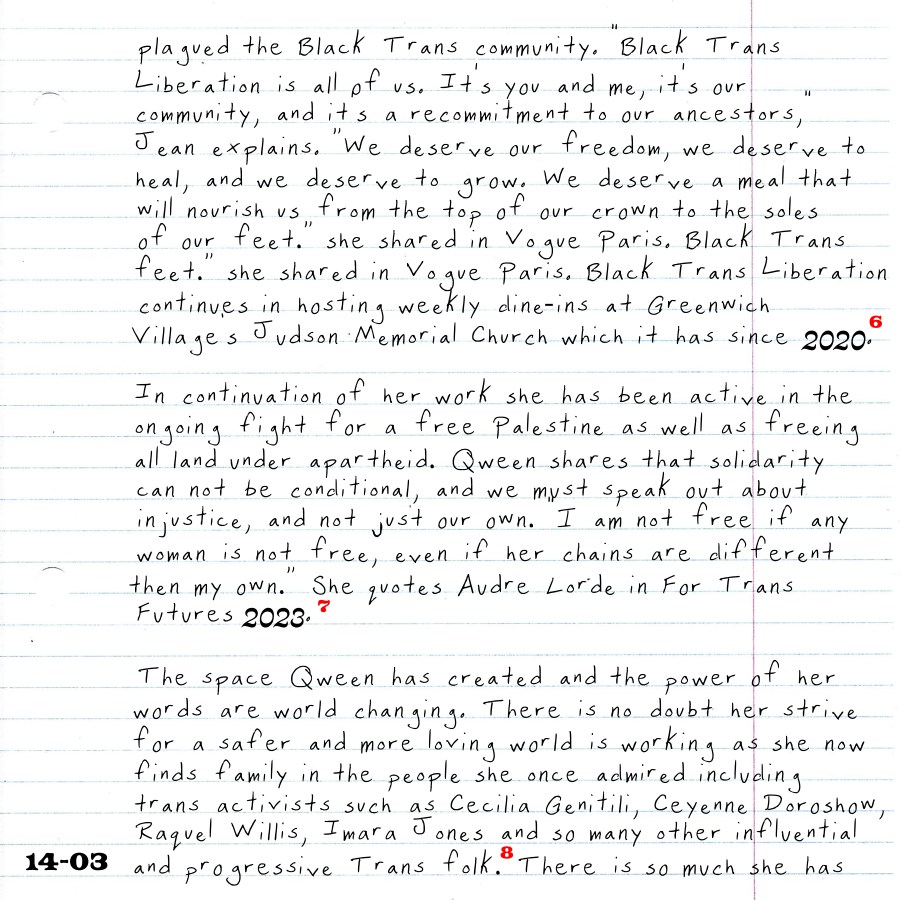 plagued the Black Trans community. "Black Trans
Liberation is all of us. It's you and me, it's our
community, and it's a recommitment to our ancestors,"
Jean explains. "We deserve our freedom, we deserve to
heal, and we deserve to grow. We deserve a meal that
will nourish us from the top of our crown to the soles
of our feet." she shared in Vogue Paris. Black Trans
feet." she shared in Vogue Paris. Black Trans Liberation
continues in hosting weekly dine-ins at Greenwich
Villages Judson Memorial Church which it has since 2020.6
In continuation of her work she has been active in the
ongoing fight for a free Palestine as well as freeing
all land under apartheid. Qween shares that solidarity
can not be conditional, and we must speak out about
injustice, and not just our own. I am not free if any
woman is not free, even if her chains are different
then my own." She quotes Audre Lorde in For Trans
Futures 2023.7
The space Qween has created and the power of her
words are world changing. There is no doubt her strive
for a safer and more loving world is working as she now
finds family in the people she once admired including
trans activists such as Cecilia Genitili, Ceyenne Doroshow,
Raquel Willis, Imara Jones and so many other influential
14-03 and progressive Trans folk.8 There is so much she has